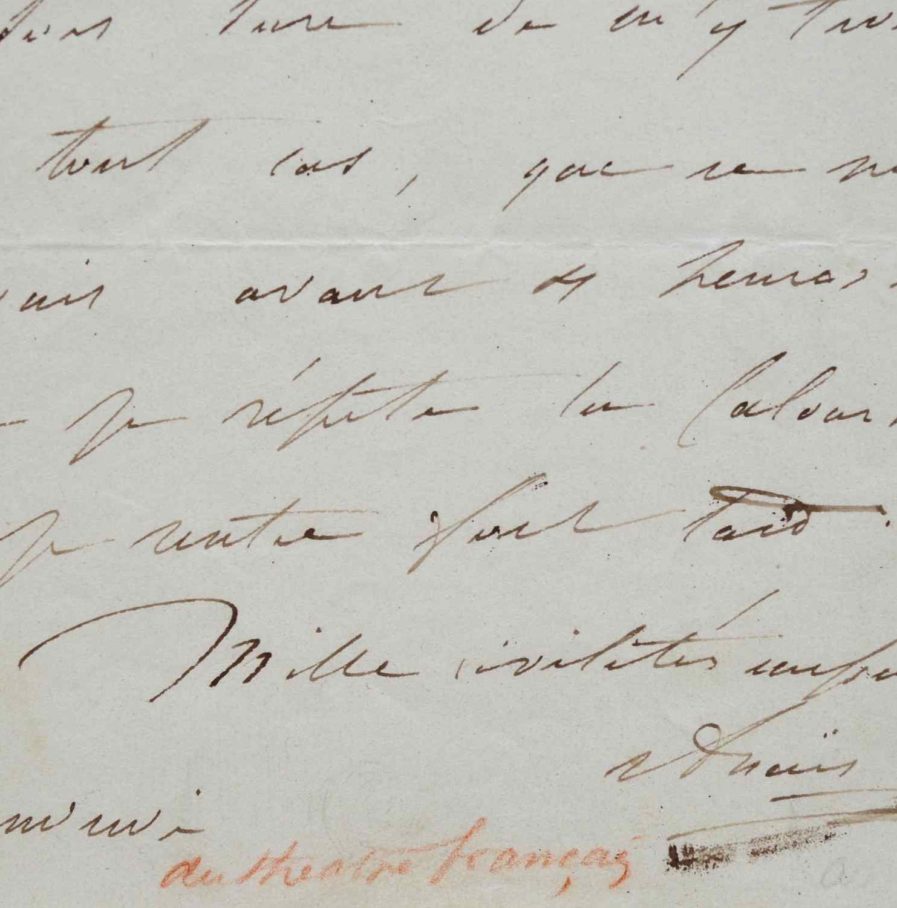 sure de m'y trou
tout cas, que je ne
vais avant 4 heures
je répète la Calom
je rentre fort tard.
Mille civilités
Anaïs
du théatre français